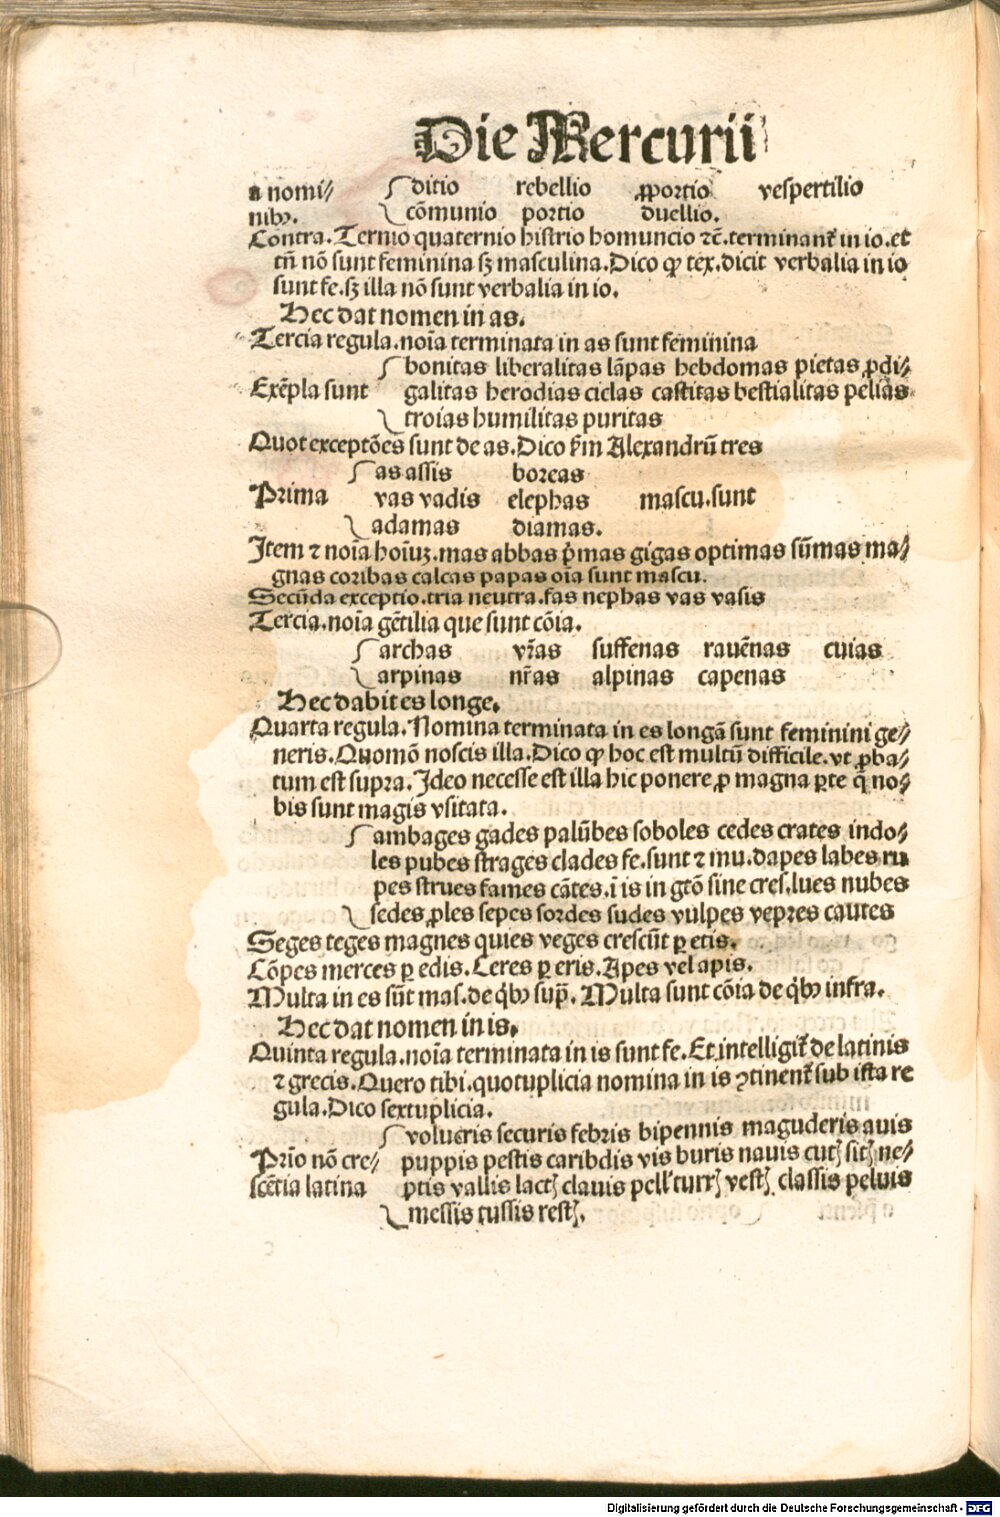 Die Mercurii
a nomi⸗ ditio rebellio ꝓportio vespertilio
nibꝰ. cōmunio portio duellio.
Contra. Ternio quaternio histrio homuncio ⁊c̄. terminant᷑ in io. et
tn̄ nō sunt feminina sꝫ masculina. Dico ꝙ tex. dicit verbalia in io
sunt fe. sꝫ illa nō sunt verbalia in io.
Hec dat nomen in as.
Tercia regula. noīa terminata in as sunt feminina
bonitas liberalitas lāpas hebdomas pietas ꝓdi⸗
Exēpla sunt galitas herodias ciclas castitas bestialitas pelias
troias humilitas puritas
Quot exceptōes sunt de as. Dico ẜm Alexandrū tres
as assis boreas
Prima vas vadis elephas mascu. sunt
adamas diamas.
Item ⁊ noīa hoīuꝫ. mas abbas p̄mas gigas optimas sūmas ma⸗
gnas coribas calcas papas oīa sunt mascu.
Secūda exceptio. tria neutra. fas nephas vas vasis
Tercia. noīa gētilia que sunt cōia.
archas vr̄as suffenas ravēnas cuias
arpinas nr̄as alpinas capenas
Hec dabit es longe.
Quarta regula. Nomina terminata in es longā sunt feminini ge⸗
neris. Quomō noscis illa. Dico ꝙ hoc est multū difficile. vt ꝓba⸗
tum est supra. Ideo necesse est illa hic ponere ꝓ magna ꝑte q̄ no⸗
bis sunt magis vsitata.
ambages gades palūbes soboles cedes crates indo⸗
les pubes strages clades fe. sunt ⁊ mu. dapes labes ru
pes strues fames cātes. i is in gtō sine cres. lues nubes
sedes ꝓles sepes sordes sudes vulpes vepres cautes
Seges teges magnes quies veges crescūt ꝑ etis.
Cōpes merces ꝑ edis. Ceres ꝑ eris. Apes vel apis.
Multa in es sūt mas. de q̇bꝰ sup̄. Multa sunt cōia de q̇bꝰ infra.
Hec dat nomen in is.
Quinta regula. noīa terminata in is sunt fe. Et intelligit᷑ de latinis
⁊ grecis. Quero tibi. quotuplicia nomina in is ꝯtinent᷑ sub ista re
gula. Dico sextuplicia.
volucris securis febris bipennis maguderis auis
Prīo nō cre⸗ puppis pestis caribdis vis buris nauis cutꝭ sitꝭ ne⸗
scētia latina ptis vallis lactꝭ clauis pell᷑ turrꝭ vestꝭ classis peluis
messis tussis restꝭ.
Digitalisierung gefördert durch die Deutsche Forschungsgemeinschaft - DFG